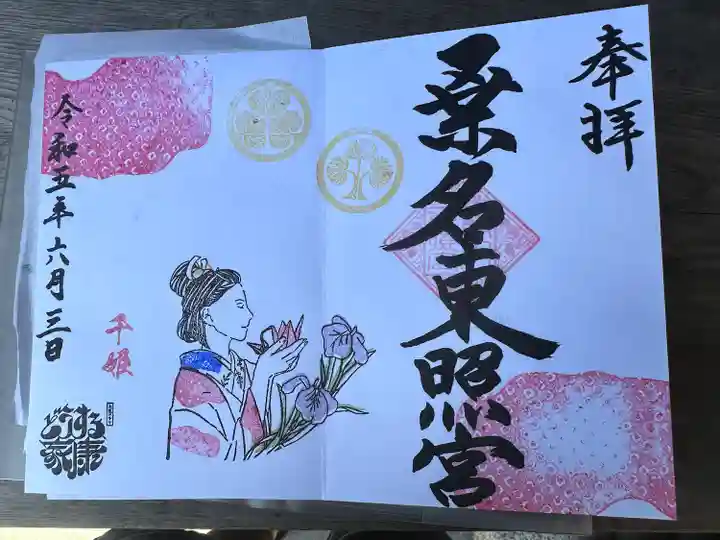 奉拝
桑名東照宮
千姫
令和五年六月三日
どうする家康